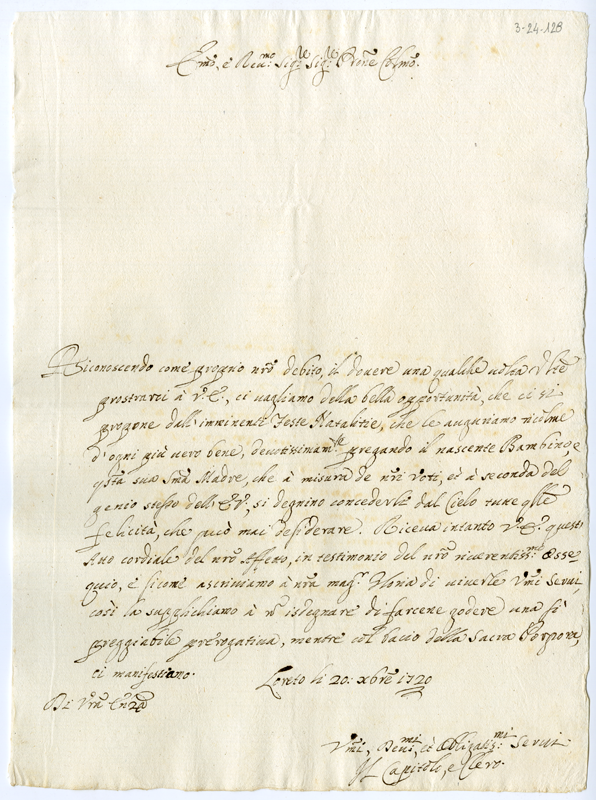 3-24-128
Emō, e Reu.mo Sig.re Sig.re Prōne Colmō.
Riconoscendo come proprio nrō debito, il douere una qualche uolta
prostrarci à V. E., ci uagliamo della bella opportunità, che ci si
propone dall'imminenti Feste Natalitie, che le auguriamo ricolme
d'ogni più uero bene, deuotissimam.te pregando il nascente Bambino, e
qstā sua Smā Madre, che à misura de nrī uoti, ed à seconda del
genio stesso dell' E. V., si degnino concederle dal Cielo tutte qlle
felicità, che può mai desiderare. Riceua intanto V. E. questo
Atto cordiale del nrō Affetto, in testimonio del nrō riuerentiss.mo Osse
quio, e sicome ascriuiamo à nrā mag.r Gloria di uiuerle Vmī Serui,
così la supplichiamo à nō isdegnare di farcene godere una sì
preggiabile prerogatiua, mentre col bacio della Sacra Porpora,
ci manifestiamo. Loreto li 20: xbrē 1720
Di Vrā Emzā
Vmī, Deuī.mi, ed Obligatis.mi Serui
Il Capitolo, e Clero.